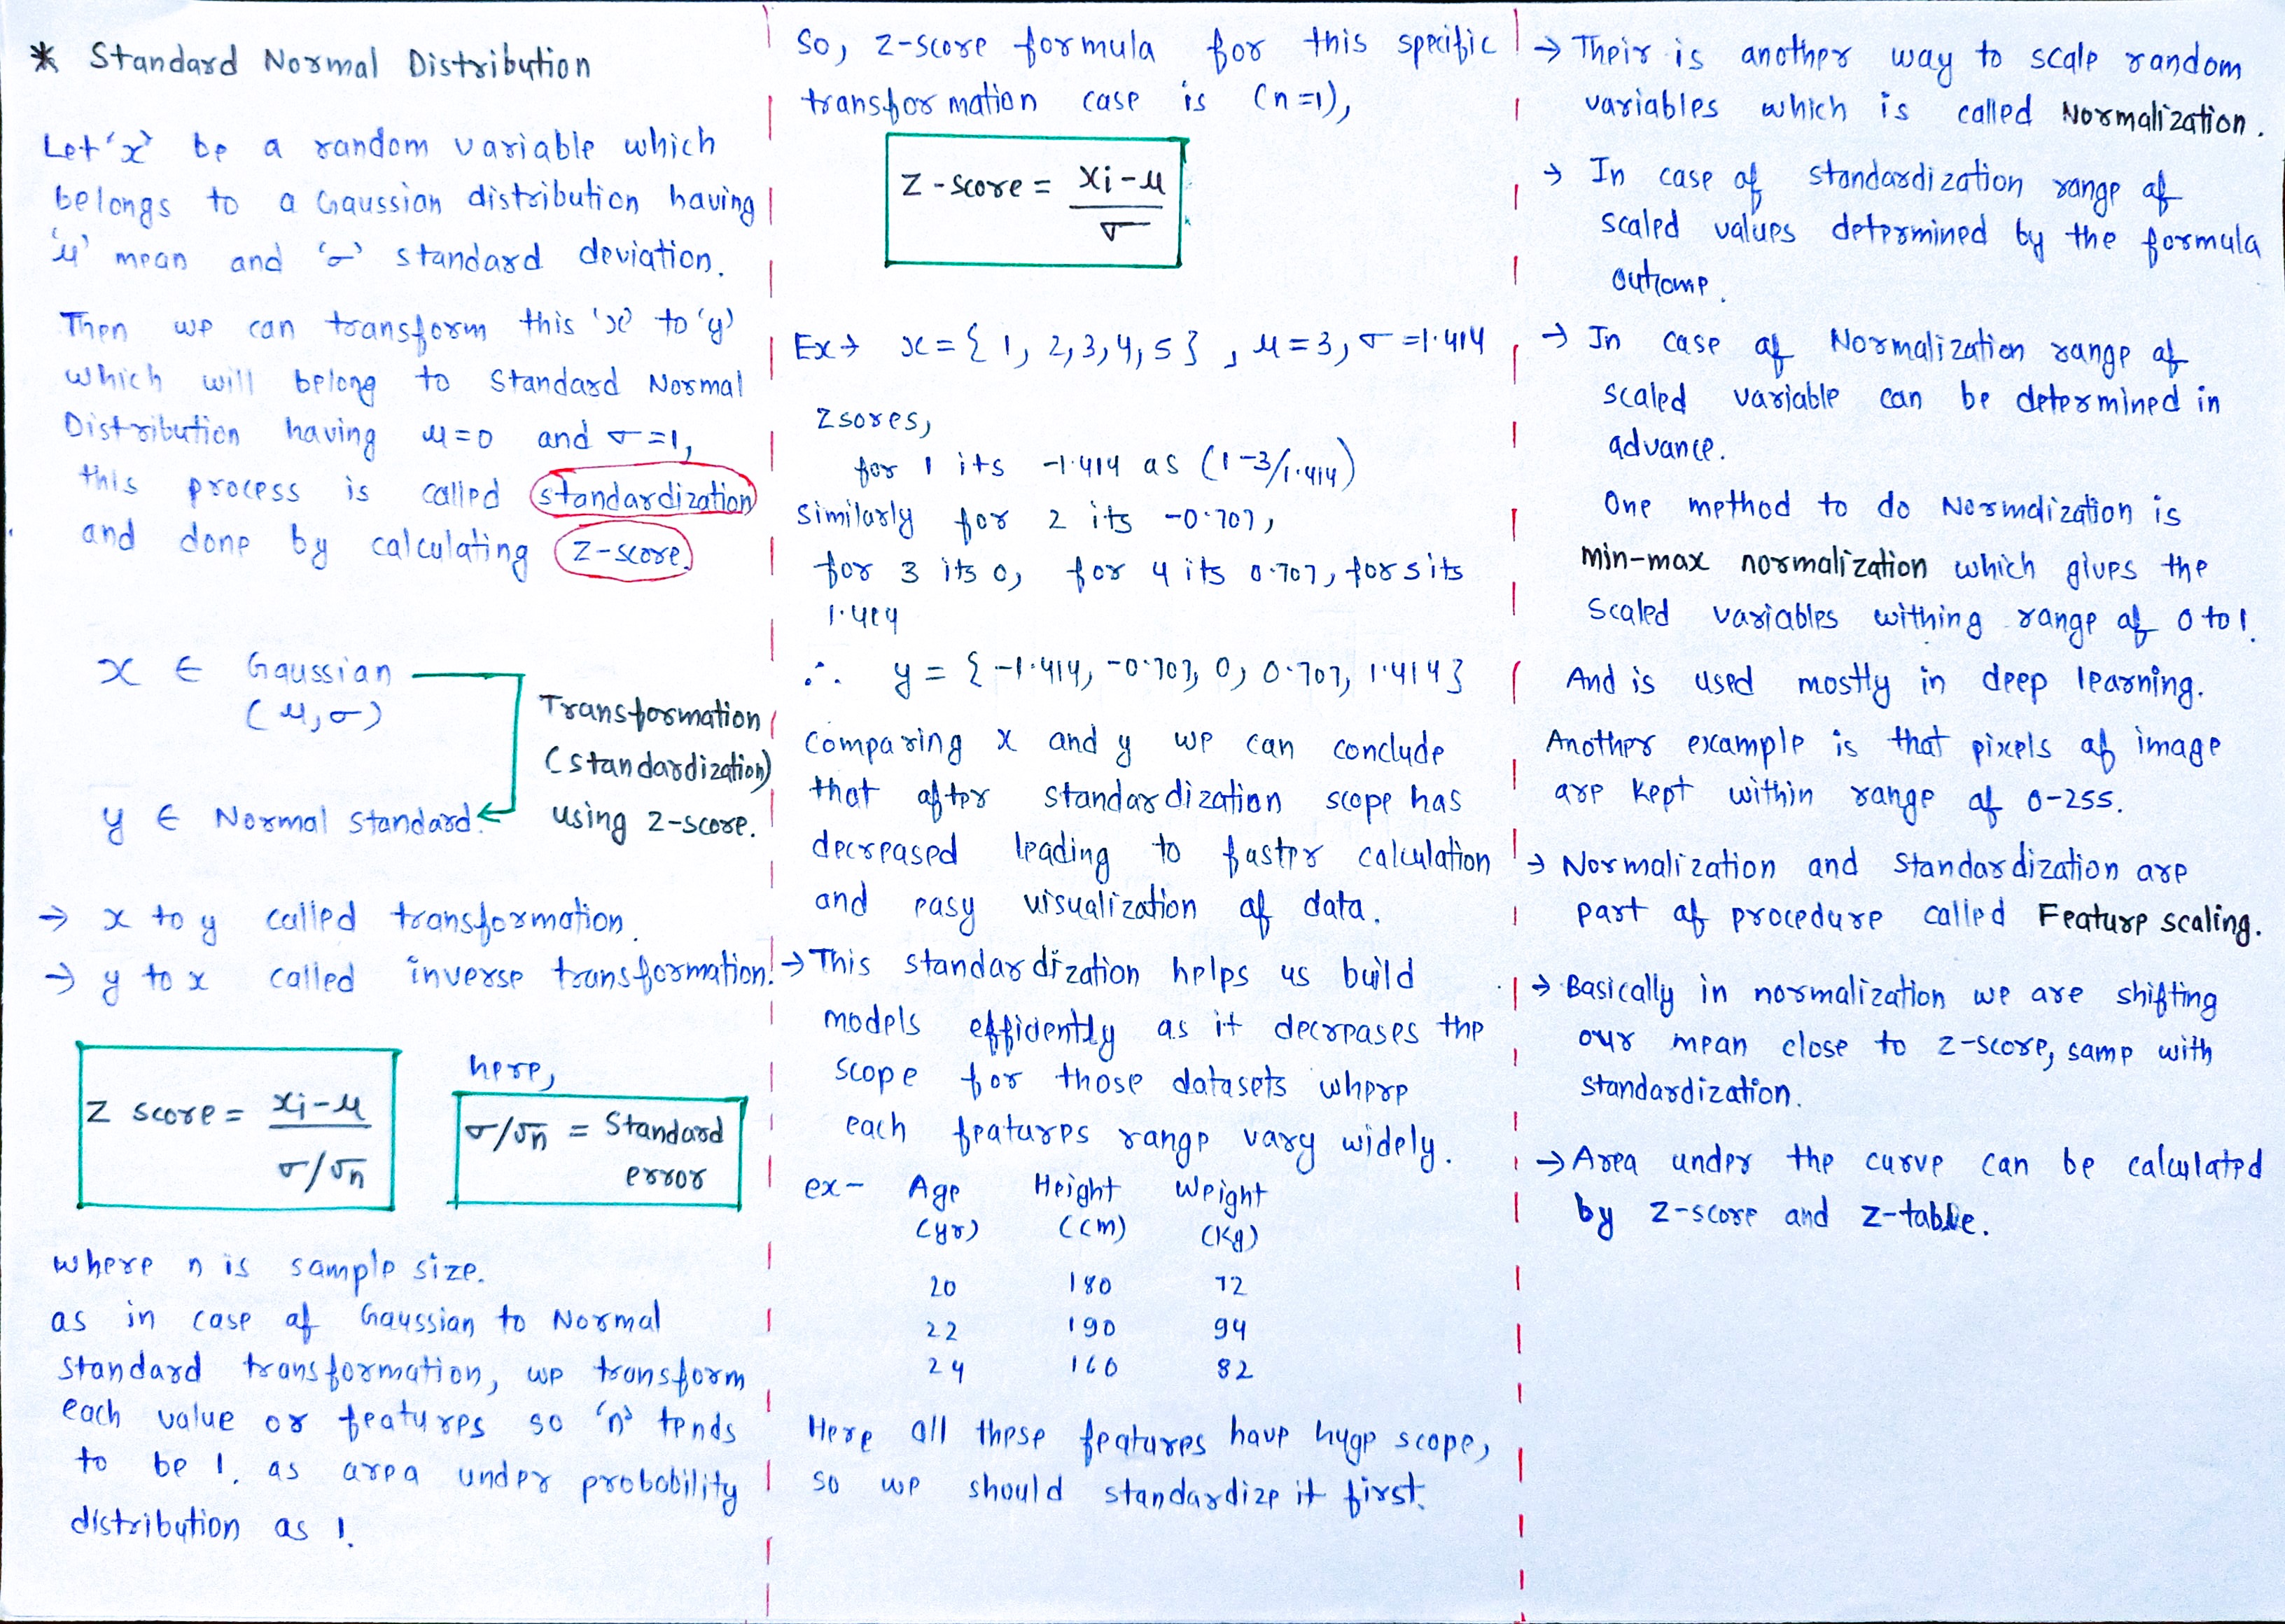 * Standard Normal Distribution
Let 'x' be a random variable which
belongs to a Gaussian distribution having
'μ' mean and 'σ' standard deviation.
Then we can transform this 'x' to 'y'
which will belong to Standard Normal
Distribution having μ=0 and σ=1,
this process is called standardization
and done by calculating z-score.
x ∈ Gaussian
(μ,σ)
Transformation
(standardization)
using z-score.
y ∈ Normal standard.
→ x to y called transformation.
→ y to x called inverse transformation.
Z score = xi-μ
σ/√n
here,
σ/√n = Standard
error
where n is sample size.
as in case of Gaussian to Normal
standard transformation, we transform
each value or features so 'n' tends
to be 1. as area under probability
distribution as 1.
So, z-score formula for this specific
transformation case is (n=1),
Z-score = xi-μ
σ
Ex→ x = { 1, 2, 3, 4, 5 } , μ = 3, σ = 1.414
Zsores,
for 1 its -1.414 as (1-3/1.414)
similarly for 2 its -0.707,
for 3 its 0, for 4 its 0.707, for 5 its
1.414
∴ y = { -1.414, -0.707, 0, 0.707, 1.414 }
comparing x and y we can conclude
that after standardization scope has
decreased leading to faster calculation
and easy visualization of data.
→ This standardization helps us build
models efficiently as it decreases the
scope for those datasets where
each features range vary widely.
ex- Age Height Weight
(yr) (cm) (Kg)
20 180 72
22 190 94
24 160 82
Here all these features have huge scope,
so we should standardize it first.
→ Their is another way to scale random
variables which is called Normalization.
→ In case of standardization range of
scaled values determined by the formula
outcome.
→ In case of Normalization range of
scaled variable can be determined in
advance.
One method to do Normalization is
min-max normalization which gives the
scaled variables withing range of 0 to 1.
And is used mostly in deep learning.
Another example is that pixels of image
are kept within range of 0-255.
→ Normalization and standardization are
part of procedure called Feature scaling.
→ Basically in normalization we are shifting
our mean close to z-score, same with
standardization.
→ Area under the curve can be calculated
by z-score and z-table.